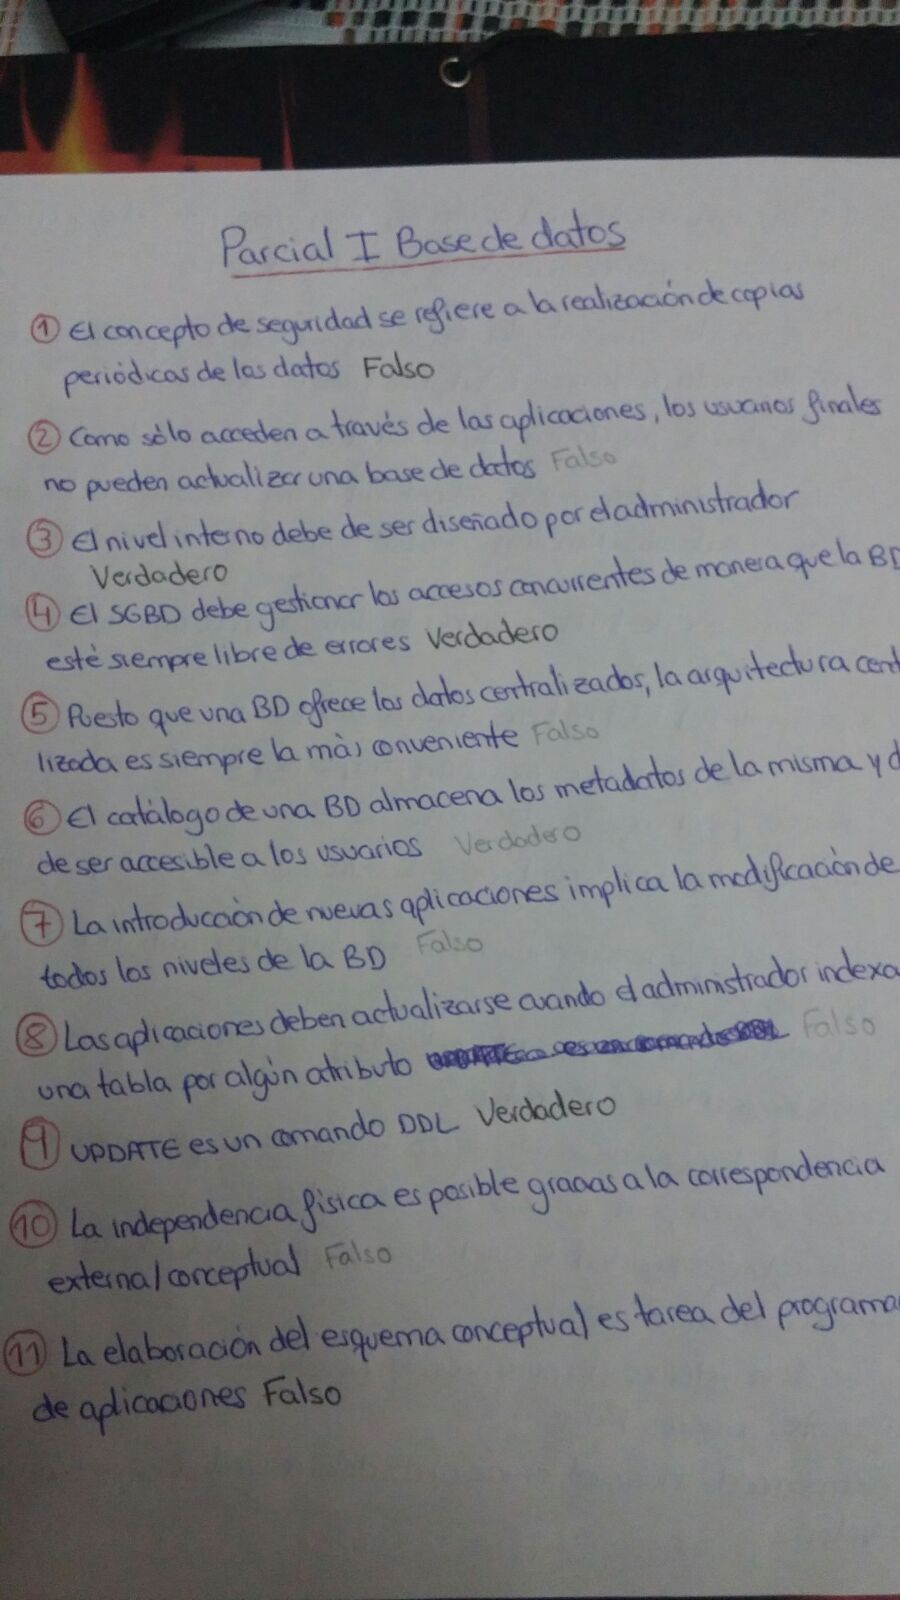 Parcial I Base de datos
① El concepto de seguridad se refiere a la realización de copias
periódicas de los datos Falso
② Como sólo acceden a través de las aplicaciones, los usuarios finales
no pueden actualizar una base de datos Falso
③ El nivel interno debe de ser diseñado por el administrador
Verdadero
④ El SGBD debe gestionar los accesos concurrentes de manera que la BD
esté siempre libre de errores Verdadero
⑤ Puesto que una BD ofrece los datos centralizados, la arquitectura cent
lizada es siempre la más conveniente Falso
⑥ El catálogo de una BD almacena los metadatos de la misma y d
de ser accesible a los usuarios Verdadero
⑦ La introducción de nuevas aplicaciones implica la modificación de
todos los niveles de la BD Falso
⑧ Las aplicaciones deben actualizarse cuando el administrador indexa
una tabla por algún atributo Falso
⑨ UPDATE es un comando DDL Verdadero
⑩ La independencia física es posible gracias a la correspondencia
externa/conceptual Falso
⑪ La elaboración del esquema conceptual es tarea del programa
de aplicaciones Falso